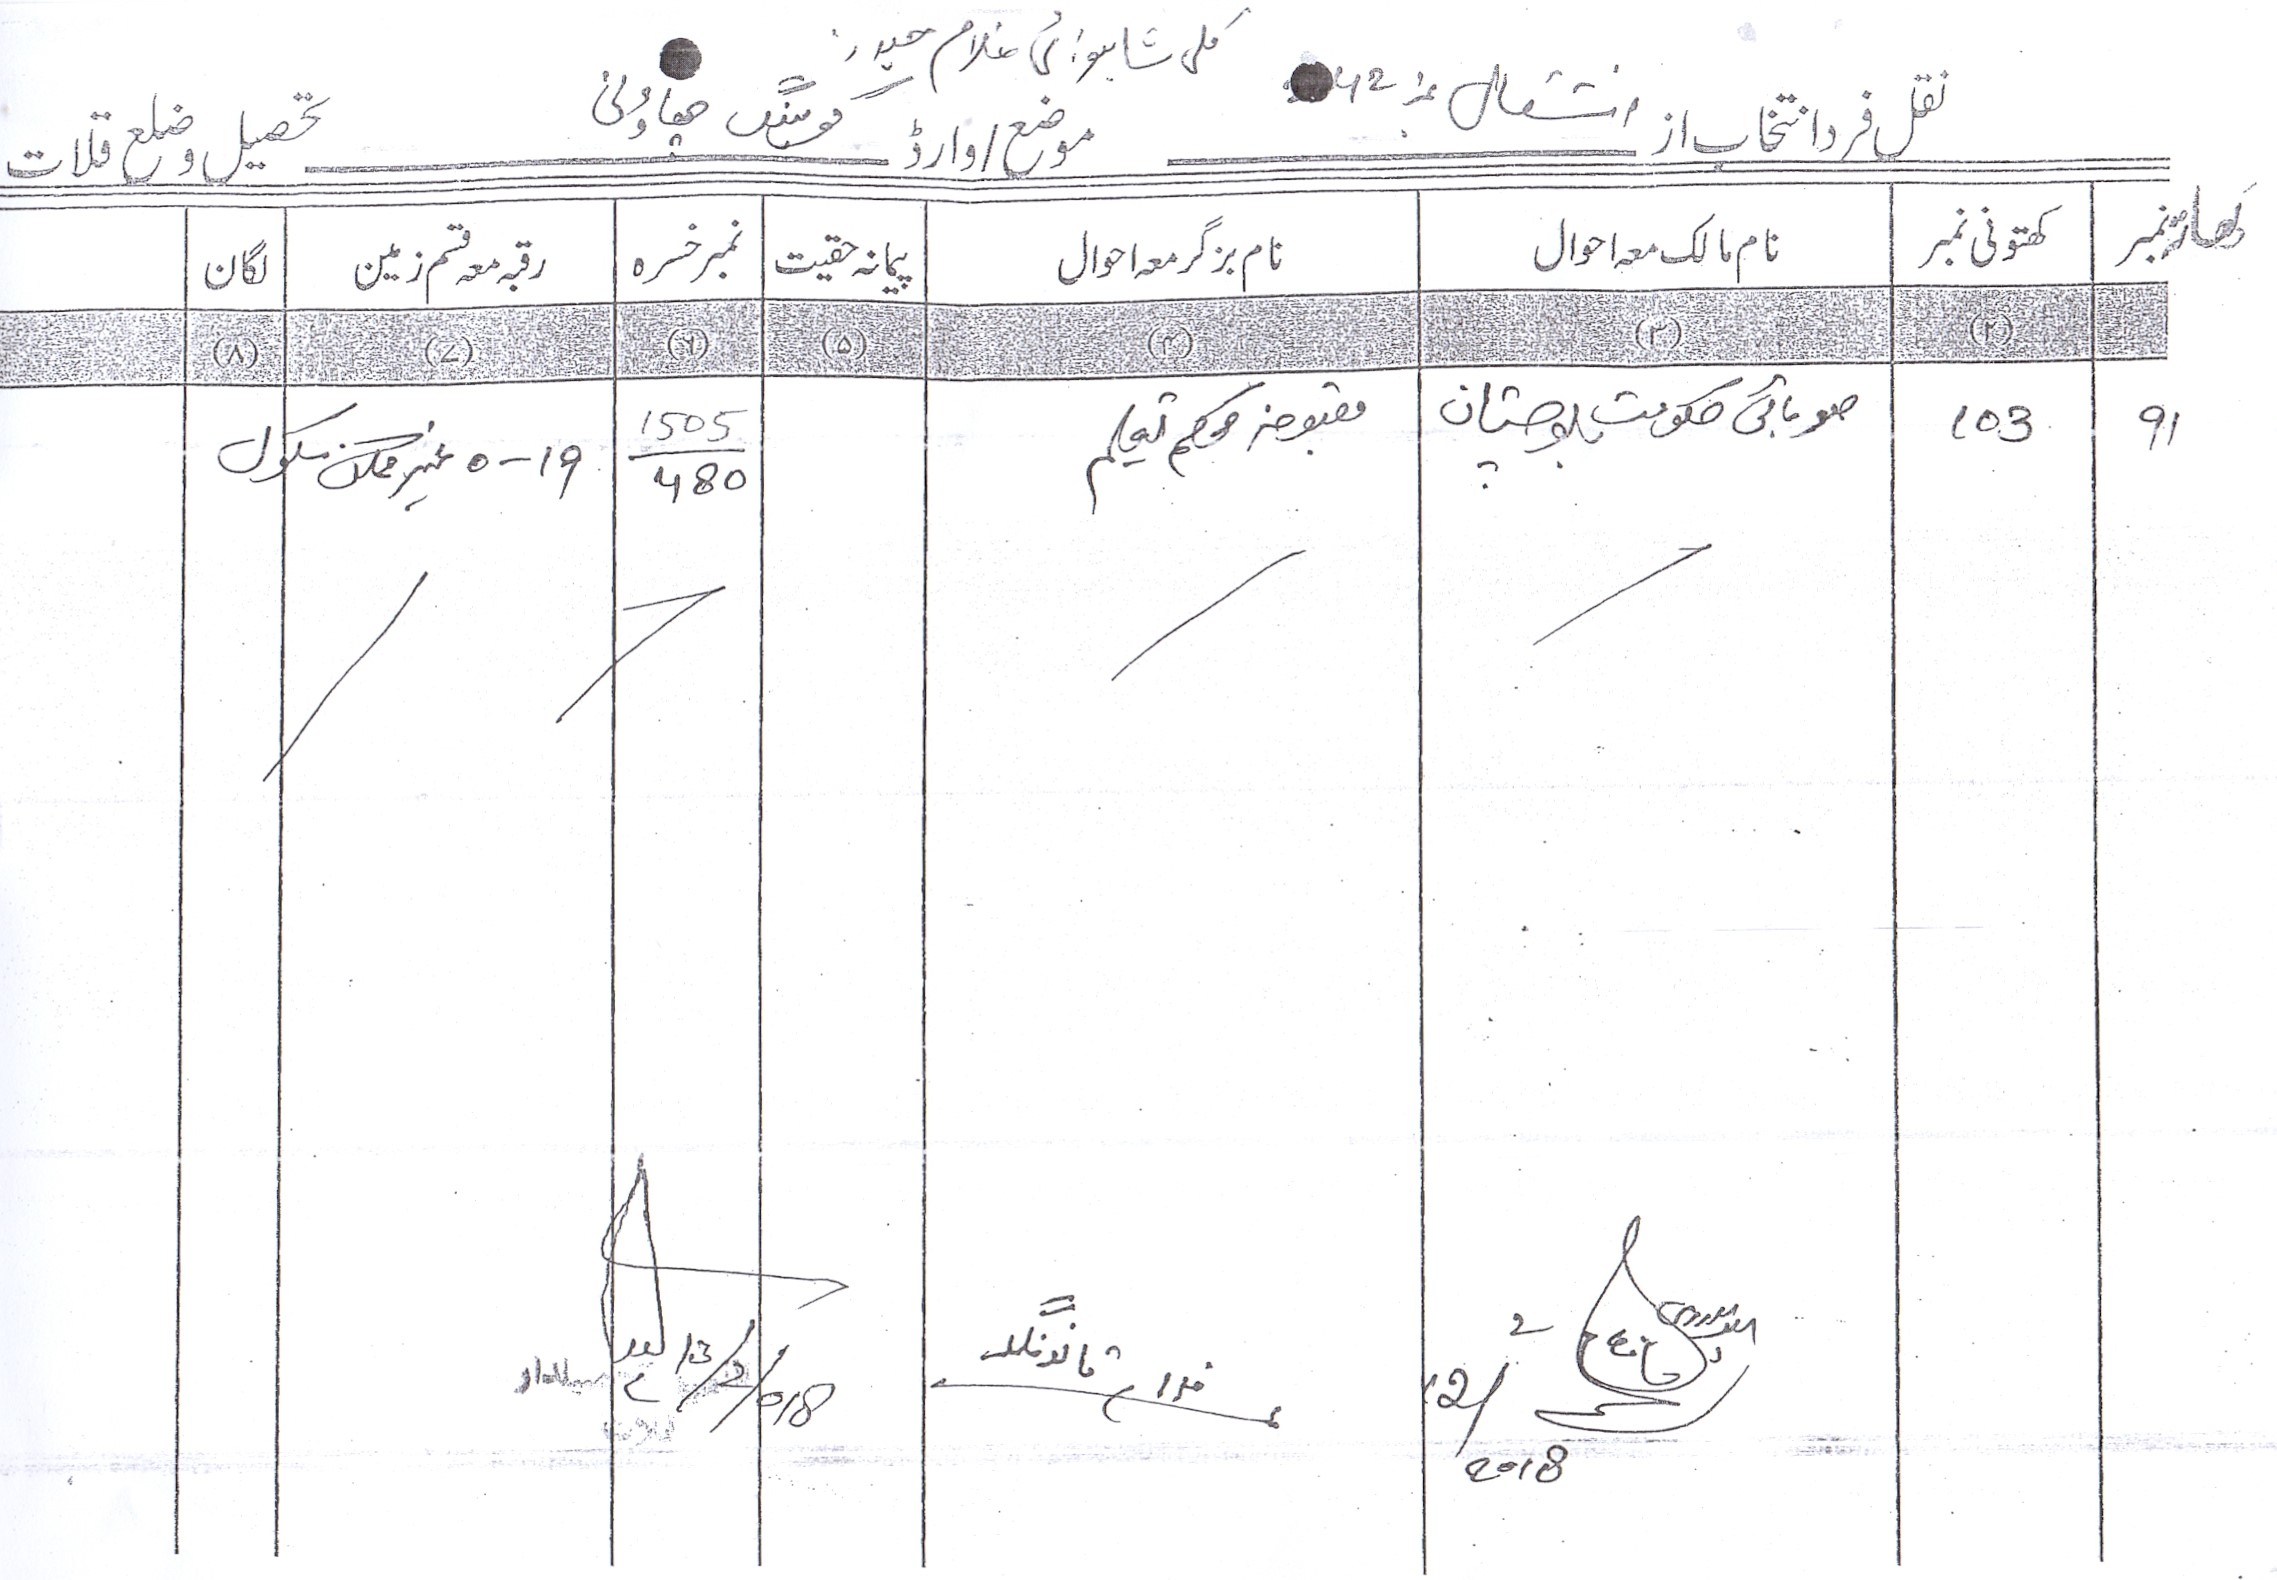 کلی شاہوانی غلام حیدر
نقل فرد انتخاب از انتقال نمبر 42 موضع/وارڈ چھاونی تحصیل و ضلع قلات
کھاتہ نمبر کھتونی نمبر نام مالک معہ احوال نام بزگر معہ احوال پیمانہ حقیت نمبر خسرہ رقبہ معہ قسم زمین لگان
(۲) (۳) (۴) (۵) (۶) (۷) (۸)
91 103 صوبائی حکومت بلوچستان مقبوضہ محکمہ تعلیم 1505/480 0-19 غیر ممکن سکول
12/2/2018
13/2/018